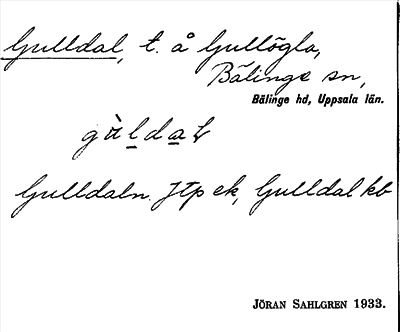 Gulldal, t. å Gullögla,
Bälinge sn,
Bälinge hd, Uppsala län.
gùldaɫ
Gulldaln. Jtp ek, Gulldal kb
JÖRAN SAHLGREN 1933.